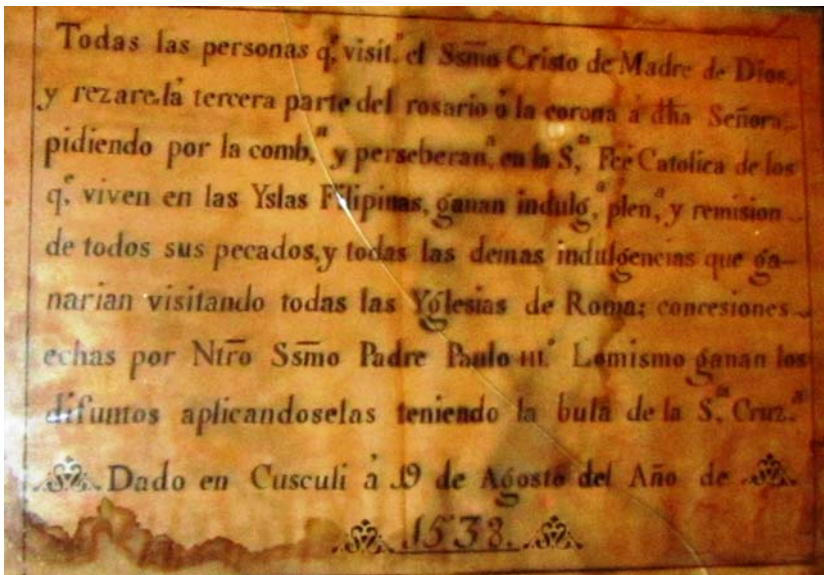 Todas las personas q.ᵉ visit.ⁿ el Ssm̃o Cristo de Madre de Dios,
y rezare.la tercera parte del rosario ó la corona á dh̃a Señora,
pidiendo por la comb,ⁿ y perseberan,ᵃ en la S,ᵗᵃ Feé Catolica de los
q,ᵉ viven en las Yslas Filipinas, ganan indulg,ᵃ plen,ᵃ y remision
de todos sus pecados, y todas las demas indulgencias que ga-
narian visitando todas las Yglesias de Roma; concesiones
echas por Ntr̃o Ssm̃o Padre Paulo III.º Lomismo ganan los
difuntos aplicandoselas teniendo la bula de la S,ᵗᵃ Cruz,ᵃ
Dado en Cusculi á 19 de Agosto del Año de
1538.